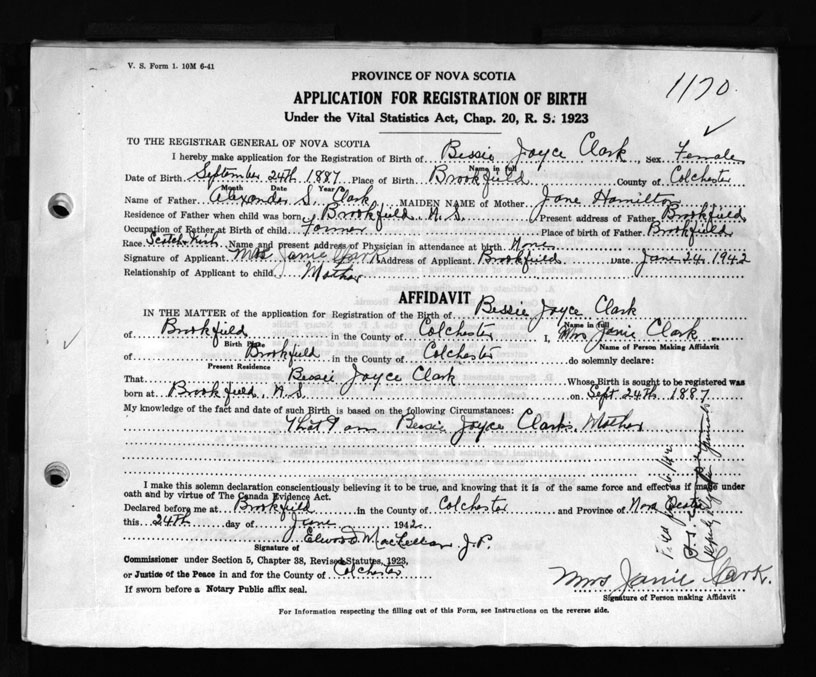 V. S. Form 1. 10M 6-41
1170.
PROVINCE OF NOVA SCOTIA
APPLICATION FOR REGISTRATION OF BIRTH
Under the Vital Statistics Act, Chap. 20, R. S. 1923
TO THE REGISTRAR GENERAL OF NOVA SCOTIA
I hereby make application for the Registration of Birth of Bessie Joyce Clark, Sex Female
Name in full
Date of Birth September 24th 1887 Place of Birth Brookfield County of Colchester
Month Date Year
Name of Father Alexander S. Clark MAIDEN NAME of Mother Jane Hamilton
Residence of Father when child was born Brookfield N.S. Present address of Father Brookfield
Occupation of Father at Birth of child Farmer Place of birth of Father Brookfield
Race Scotch Irish Name and present address of Physician in attendance at birth None
Signature of Applicant Mrs Janie Clark Address of Applicant Brookfield Date June 24, 1942
Relationship of Applicant to child Mother
AFFIDAVIT
IN THE MATTER of the application for Registration of the Birth of Bessie Joyce Clark
Name in full
of Brookfield in the County of Colchester I, Mrs Janie Clark
Birth Place Name of Person Making Affidavit
of Brookfield in the County of Colchester do solemnly declare:
Present Residence
That Bessie Joyce Clark Whose Birth is sought to be registered was
born at Brookfield, N.S. on Sept 24th 1887
My knowledge of the fact and date of such Birth is based on the following Circumstances:
That I am Bessie Joyce Clark's Mother
I make this solemn declaration conscientiously believing it to be true, and knowing that it is of the same force and effect as if made under
oath and by virtue of The Canada Evidence Act.
Declared before me at Brookfield in the County of Colchester and Province of Nova Scotia
this 24th day of June 1942
Elwood MacLellan J.P.
Signature of
Commissioner under Section 5, Chapter 38, Revised Statutes, 1923,
or Justice of the Peace in and for the County of Colchester
If sworn before a Notary Public affix seal.
Mrs Janie Clark.
Signature of Person making Affidavit
For Information respecting the filling out of this Form, see Instructions on the reverse side.